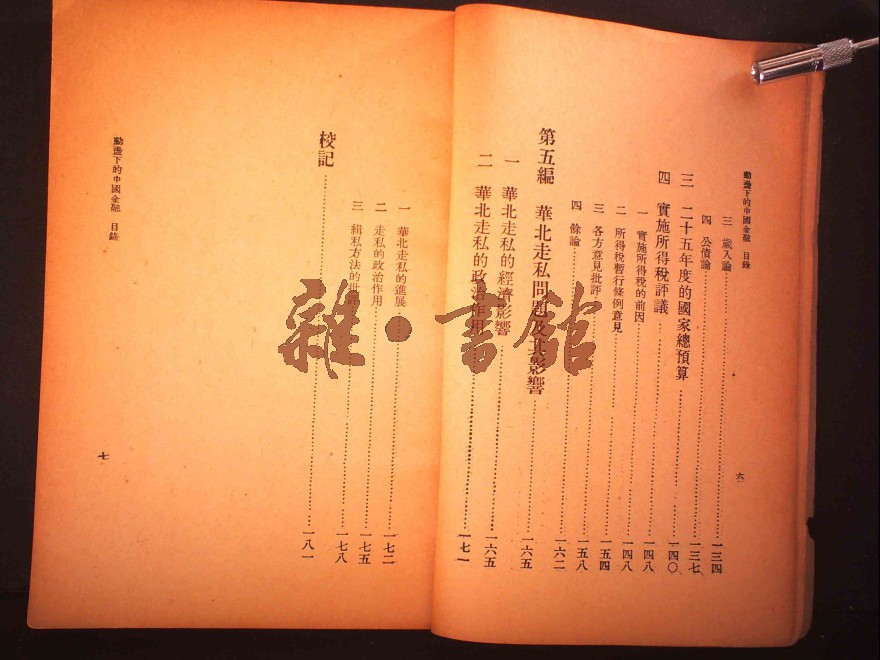 動盪下的中國金融 目錄
三 歲入論……一三四
四 公債論……一三七
三 二十五年度的國家總預算……一四〇
四 實施所得稅評議
一 實施所得稅的前因……一四八
二 所得稅暫行條例意見……一四八
三 各方意見批評……一五四
四 餘論……一五八
第五編 華北走私問題及其影響……一六五
一 華北走私的經濟影響……一六五
二 華北走私的政治作用……一七一
六
動盪下的中國金融 目錄
一 華北走私的進展……一七二
二 走私的政治作用……一七五
三 緝私方法的批評……一七八
校記……一八一
七
雜·書館